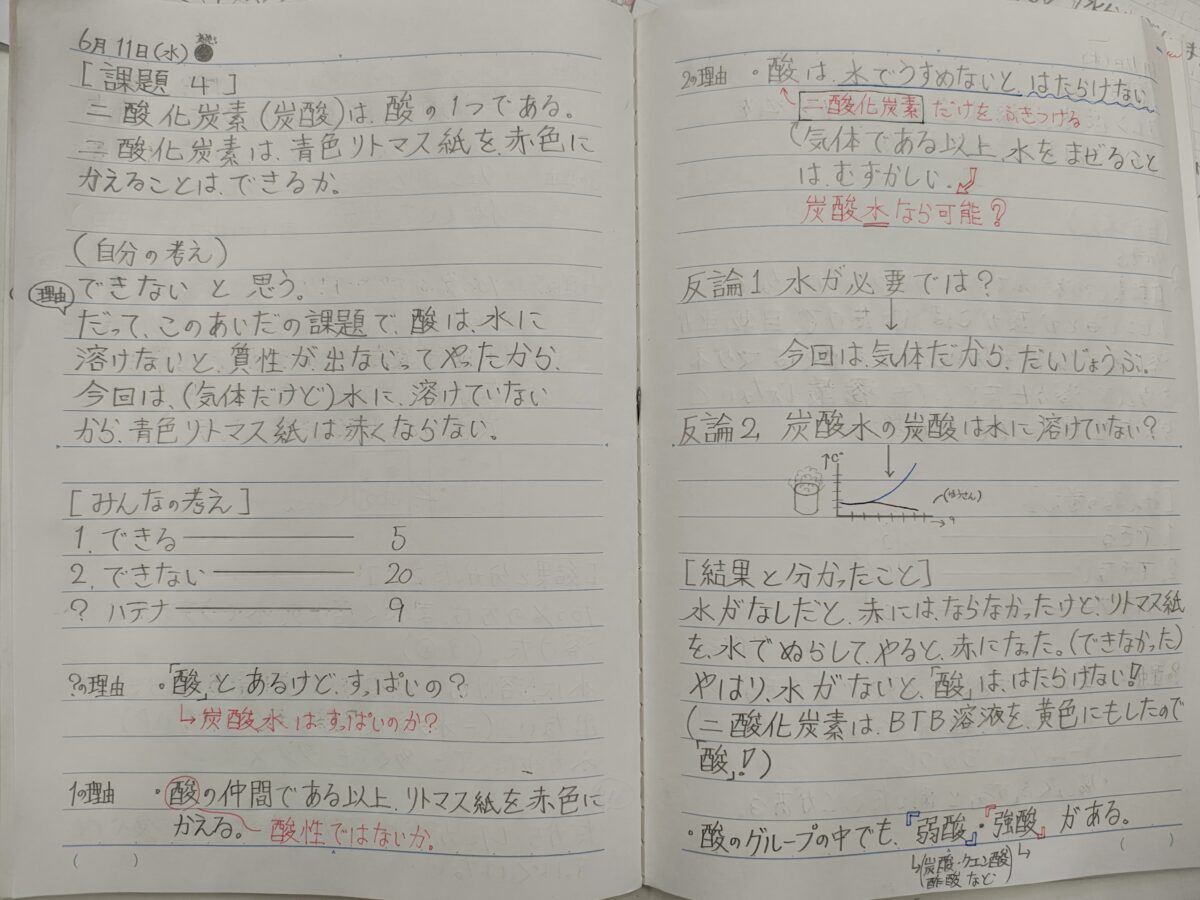 6月11日(水)
[課題 4]
二酸化炭素(炭酸)は、酸の1つである。
二酸化炭素は、青色リトマス紙を、赤色に
かえることは、できるか。
(自分の考え)
できない と 思う。
理由
だって、このあいだの課題で、酸は、水に
溶けないと、質性が、出ないってやったから、
今回は、(気体だけど)水に、溶けていない
から、青色リトマス紙は、赤くならない。
[みんなの考え]
1. できる 5
2. できない 20
? ハテナ 9
?の理由 ・「酸」とあるけど、すっぱいの?
↳炭酸水はすっぱいのか?
1の理由 ・酸の仲間である以上、リトマス紙を赤色に
かえる。 酸性ではないか。
( )
2の理由 ・酸は、水でうすめないと、はたらけない
二酸化炭素だけを、ふきつける
(気体である以上、水をまぜること
は、むずかしい。
炭酸水なら可能?
反論1 水が必要では?
↓
今回は、気体だから、だいじょうぶ。
反論2 炭酸水の炭酸は水に溶けていない?
↓
↑C°
(ほうさん)
[結果と分かったこと]
水がなしだと、赤には、ならなかったけど、リトマス紙
を、水でぬらして、やると、赤になった。(できなかった)
やはり、水がないと、「酸」は、はたらけない!
(二酸化炭素は、BTB溶液を、黄色にもしたので
「酸」!)
・酸のグループの中でも、『弱酸』・『強酸』がある。
↳(炭酸・クエン酸
酢酸など)
( )